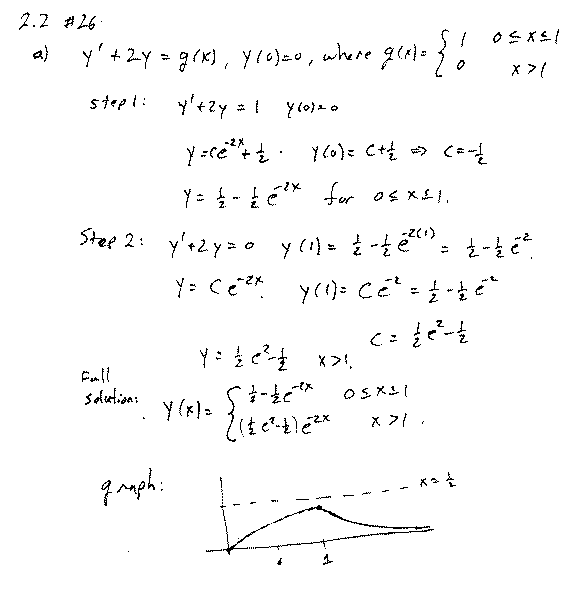 2.2 #26.
a) y' + 2y = g(x), y(0)=0, where g(x) = { 1 0 ≤ x ≤ 1
0 x > 1
step 1: y' + 2y = 1 y(0)=0
y = ce^{-2x} + 1/2. y(0) = C + 1/2 ⇒ C = -1/2
y = 1/2 - 1/2 e^{-2x} for 0 ≤ x ≤ 1.
Step 2: y' + 2y = 0 y(1) = 1/2 - 1/2 e^{-2(1)} = 1/2 - 1/2 e^{-2}.
y = Ce^{-2x}. y(1) = Ce^{-2} = 1/2 - 1/2 e^{-2}
C = 1/2 e^2 - 1/2
y = 1/2 e^2 - 1/2 x > 1.
Full
solution: y(x) = { 1/2 - 1/2 e^{-2x} 0 ≤ x ≤ 1
(1/2 e^2 - 1/2) e^{-2x} x > 1.
graph:
x = 1/2
1